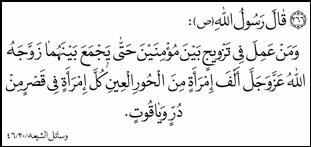 ۲۶۶ قَالَ رَسُولُ اللهِ (ص):
وَمَنْ عَمِلَ فِي تَزْوِيجٍ بَيْنَ مُؤْمِنَيْنِ حَتَّى يَجْمَعَ بَيْنَهُمَا زَوَّجَهُ
اللهُ عَزَّوَجَلَّ أَلْفَ إِمْرَأَةٍ مِنَ الْحُورِ الْعِينِ كُلُّ إِمْرَأَةٍ فِي قَصْرٍ مِنْ
دُرٍّ وَيَاقُوتٍ.
وسائل الشیعه/۲۰/۴۶